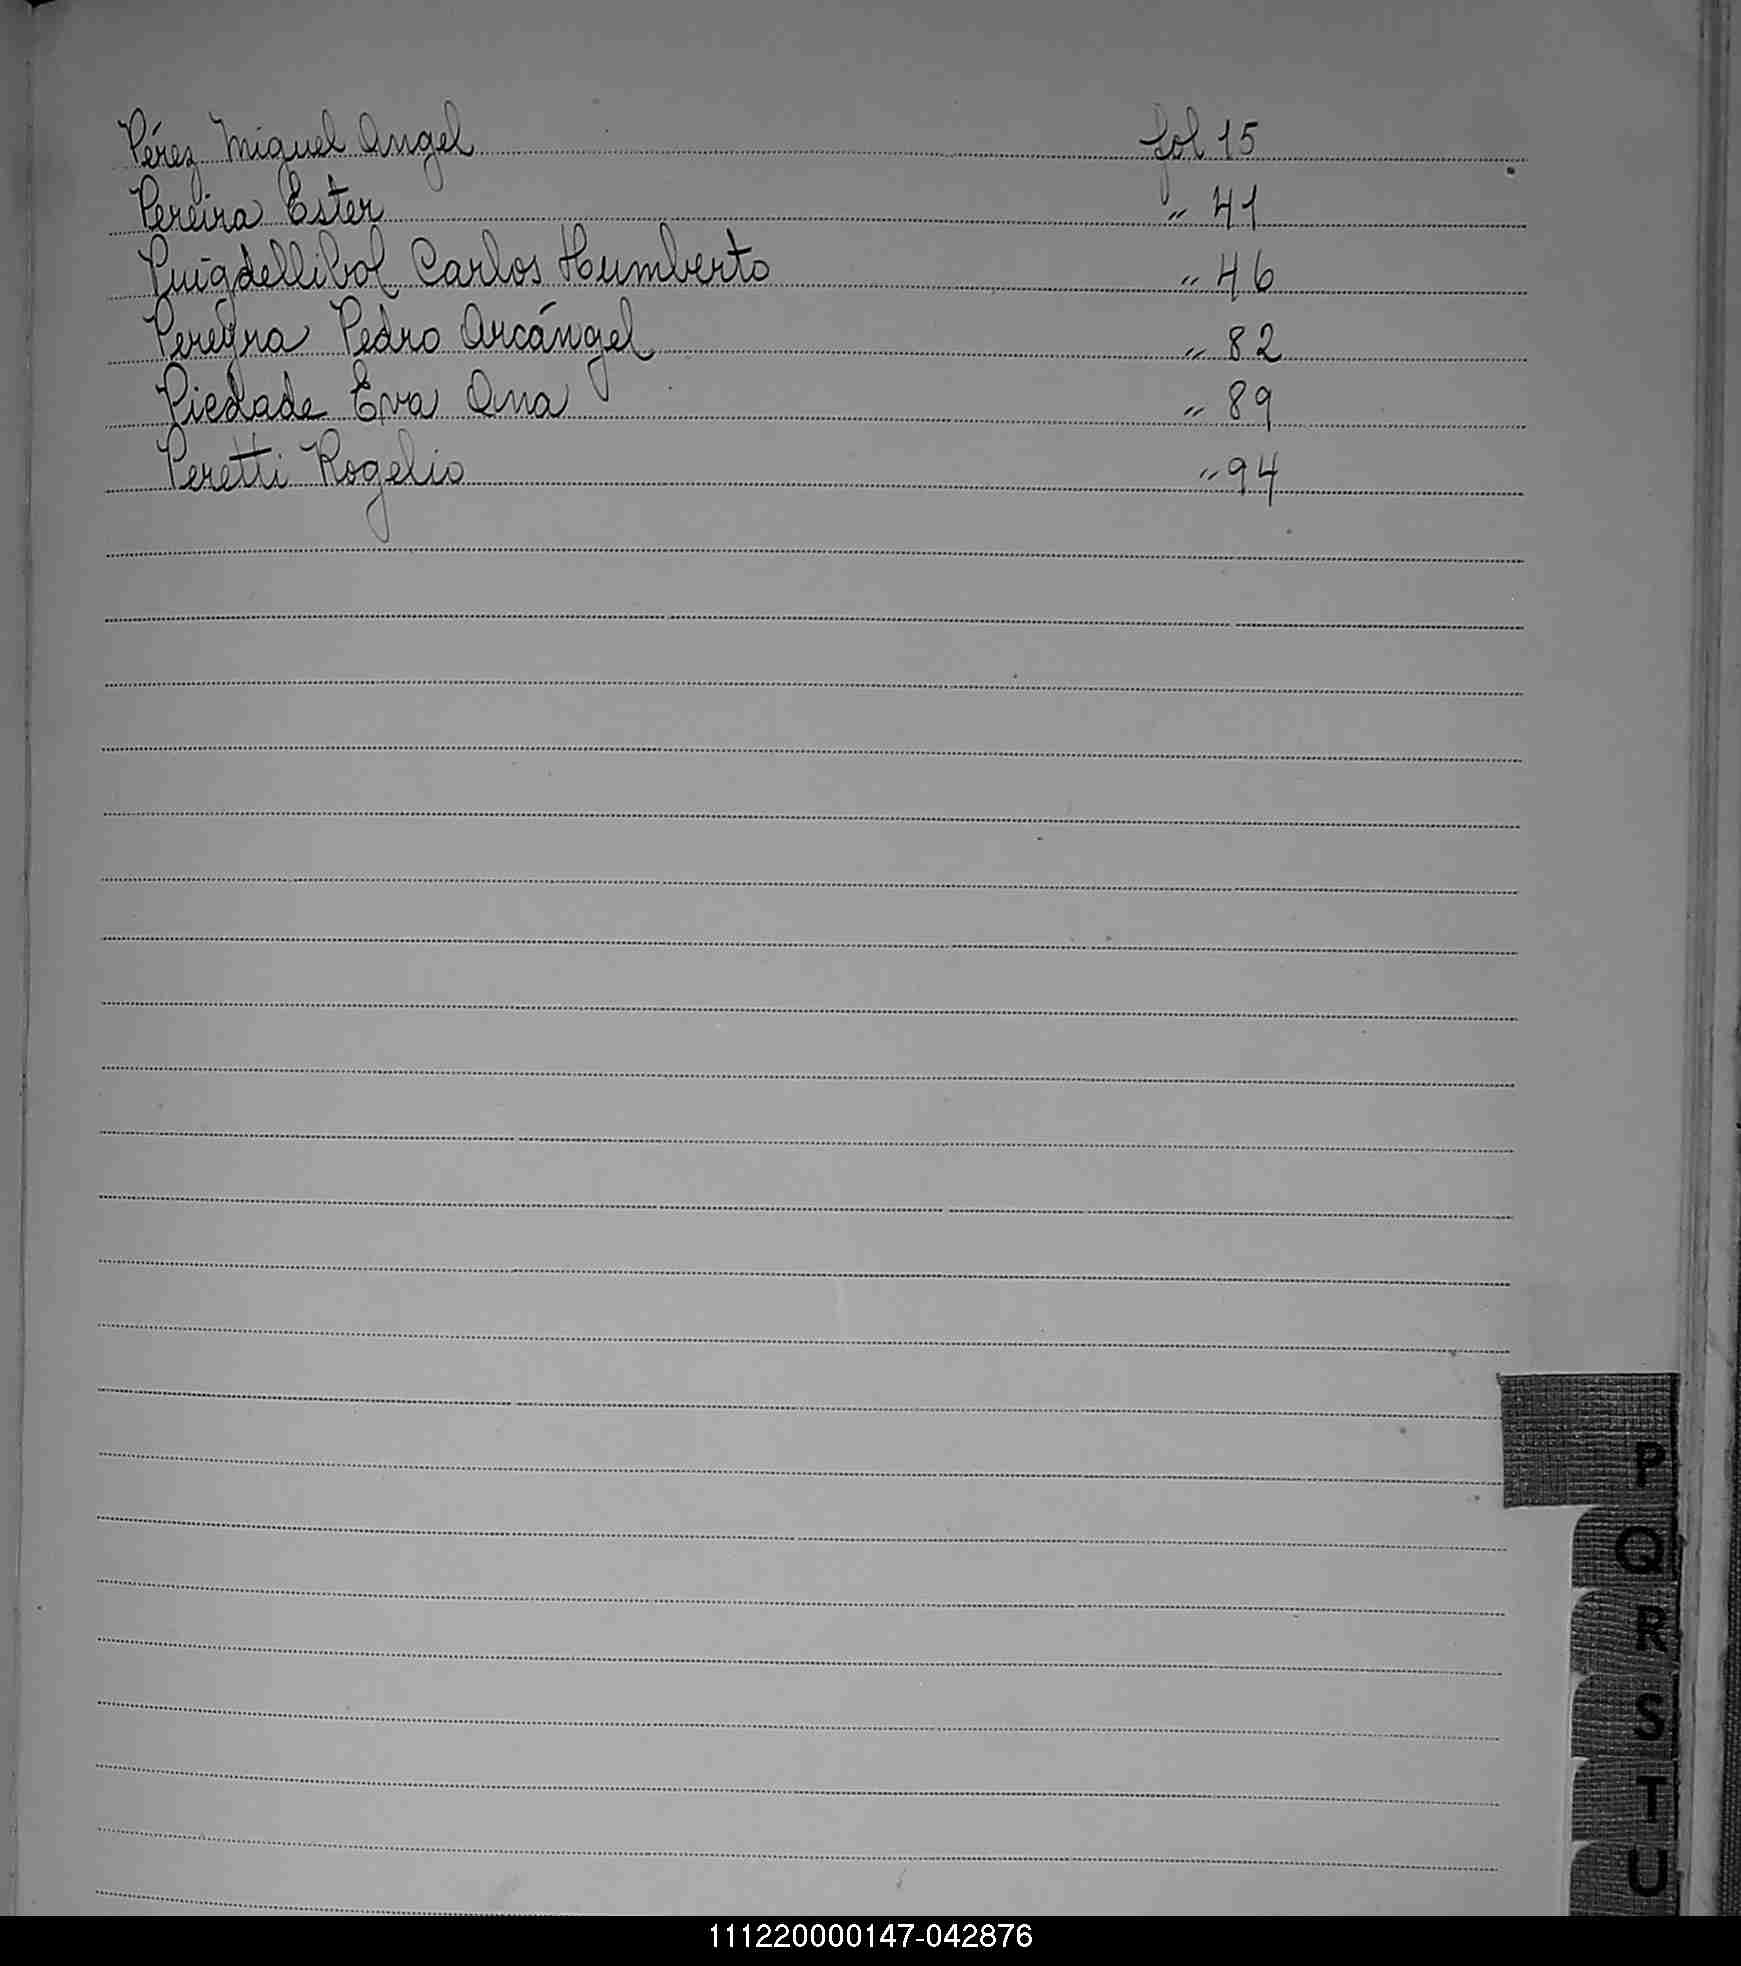 Pérez Miguel Angel fol 15
Pereira Ester " 41
Puigdellibol Carlos Humberto " 46
Pereyra Pedro Arcángel " 82
Piedade Eva Ana " 89
Peretti Rogelio " 94
P
Q
R
S
T
U
111220000147-042876